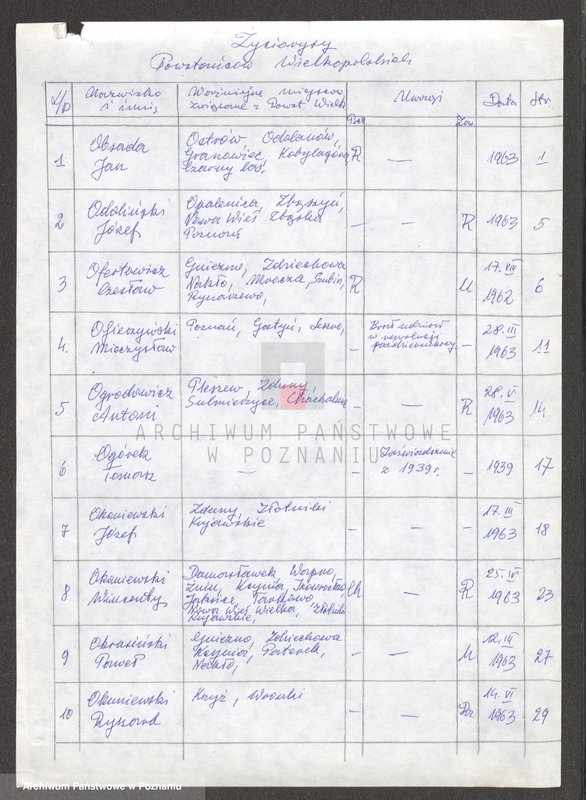 Życiorysy
Powstańców Wielkopolskich
L/p Nazwisko i imię Ważniejsze miejscow. związane z Powst Wielk. Uwagi Data Str.
1 Obsada Jan Ostrów, Odolanów, Granowiec, Kobylagóra, Czarny las. R — 1963 1
2 Odoliński Józef Opalenica, Zbąszyń, Nowa Wieś Zbąska Poznań — — R 1963 5
3 Ofertowicz Czesław Gniezno, Zdziechowa Nakło, Mrocza, Szubin, Rynarzewo, R M 17. VIII 1962 6
4. Ofierzyński Mieczysław Poznań, Gostyń, — Brał udział w rewolucji październikowej — 28. III 1963 11
5 Ogrodowicz Antoni Pleszew, Zduny, Sulmierzyce, Chachalnia — — R 28. VI 1963 14.
6 Ogórek Tomasz — — Zaświadczenie z 1939r. — 1939 17
7 Okoniewski Józef Zduny, Złotniki Kujawskie — — — 17. III 1963 18
8 Okoniewski Wincenty Damasławek, Wapno, Żnin, Kcynia, Inowrocław, Jaksice, Tarkowo, Nowa Wieś Wielka, Złotniki Kujawskie, — R 25. IV 1963 23
9 Okrasiński Paweł Gniezno, Zdziechowa Kcynia, Paterek, Nakło, — — M 12. IV 1963 27
10 Okuniewski Ryszard Krzyż, Wronki — — 14. VI 1963 29
ARCHIWUM PAŃSTWOWE
W POZNANIU
Archiwum Państwowe w Poznaniu